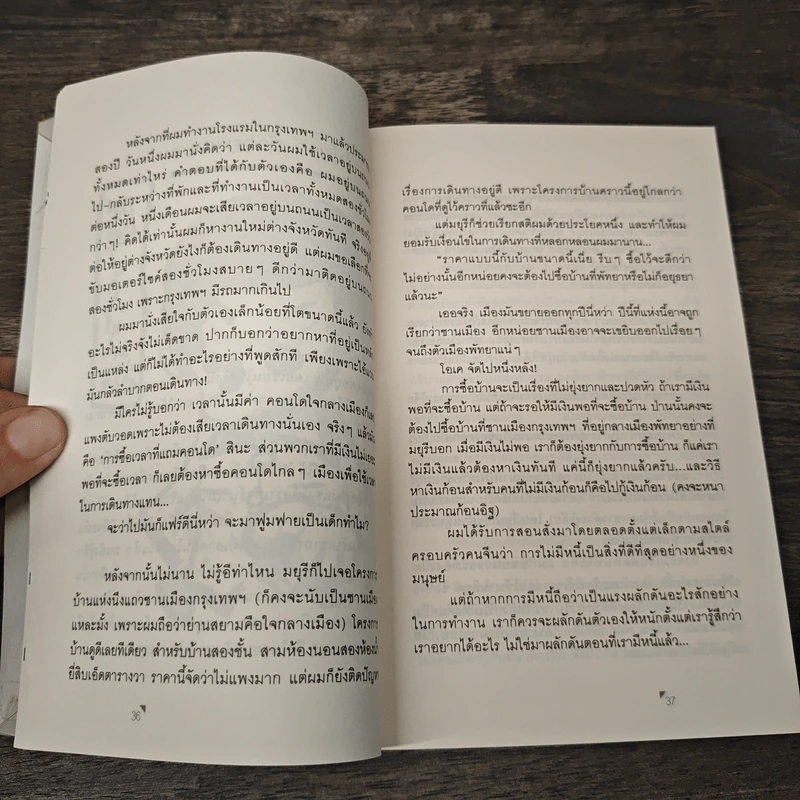 หลังจากที่ผมทำงานโรงแรมในกรุงเทพฯ มาแล้วประมาณ
สองปี วันหนึ่งผมมานั่งคิดว่า แต่ละวันผมใช้เวลาอยู่บนถนน
ทั้งหมดเท่าไหร่ คำตอบที่ได้กับตัวเองคือ ผมอยู่บนถนน
ไป-กลับระหว่างที่พักและที่ทำงานเป็นเวลาทั้งหมดสองชั่วโมง
ต่อหนึ่งวัน หนึ่งเดือนผมจะเสียเวลาอยู่บนถนนเป็นเวลาสอง
กว่าๆ! คิดได้เท่านั้นผมก็หางานใหม่ต่างจังหวัดทันที จริงอยู่
ต่อให้อยู่ต่างจังหวัดยังไงก็ต้องเดินทางอยู่ดี แต่ผมขอเลือก
ขับมอเตอร์ไซค์สองชั่วโมงสบายๆ ดีกว่ามาติดอยู่บนถนน
สองชั่วโมง เพราะกรุงเทพฯ มีรถมากเกินไป
ผมมานั่งเสียใจกับตัวเองเล็กน้อยที่โตขนาดนี้แล้ว ยัง
อะไรไม่จริงจังไม่เด็ดขาด ปากก็บอกว่าอยากหาที่อยู่เป็น
เป็นแหล่ง แต่ก็ไม่ได้ทำอะไรอย่างที่พูดสักที เพียงเพราะ
มันกลัวลำบากตอนเดินทาง!
มีใครไม่รู้บอกว่า เวลานั้นมีค่า คอนโดใจกลางเมือง
แพงตับวอดเพราะไม่ต้องเสียเวลาเดินทางนั่นเอง จริงๆ แล้ว
คือ ‘การซื้อเวลาที่แถมคอนโด’ สินะ ส่วนพวกเราที่มีเงินไม่
พอที่จะซื้อเวลา ก็เลยต้องหาซื้อคอนโดไกลๆ เมืองเพื่อใช้เวลา
ในการเดินทางแทน...
จะว่าไปมันก็แฟร์ดีนี่หว่า จะมาฟูมฟายเป็นเด็กทำไม?
หลังจากนั้นไม่นาน ไม่รู้อีท่าไหน มยุรีก็ไปเจอโครงการ
บ้านแห่งนึงแถวชานเมืองกรุงเทพฯ (ก็คงจะนับเป็นชานเมือง
แหละมั้ง เพราะผมถือว่าย่านสยามคือใจกลางเมือง) โครงการ
บ้านดูดีเลยทีเดียว สำหรับบ้านสองชั้น สามห้องนอนสองห้องน้ำ
ยี่สิบเอ็ดตารางวา ราคานี้จัดว่าไม่แพงมาก แต่ผมก็ยังติดปัญหา
36
เรื่องการเดินทางอยู่ดี เพราะโครงการบ้านคราวนี้อยู่ไกลกว่า
คอนโดที่ดูไว้คราวที่แล้วซะอีก
แต่มยุรีก็ช่วยเรียกสติผมด้วยประโยคหนึ่ง และทำให้ผม
ยอมรับเงื่อนไขในการเดินทางที่หลอกหลอนผมมานาน...
“ราคาแบบนี้กับบ้านขนาดนี้เนี่ย รีบๆ ซื้อไว้จะดีกว่า
ไม่อย่างนั้นอีกหน่อยคงจะต้องไปซื้อบ้านที่พัทยาหรือไม่ก็อยุธยา
แล้วนะ”
เออจริง เมืองมันขยายออกทุกปีนี่หว่า ปีนี้ที่แห่งนี้อาจถูก
เรียกว่าชานเมือง อีกหน่อยชานเมืองอาจจะเขยิบออกไปเรื่อยๆ
จนถึงตัวเมืองพัทยาแน่ๆ
โอเค จัดไปหนึ่งหลัง!
การซื้อบ้านจะเป็นเรื่องที่ไม่ยุ่งยากและปวดหัว ถ้าเรามีเงิน
พอที่จะซื้อบ้าน แต่ถ้าจะรอให้มีเงินพอที่จะซื้อบ้าน ป่านนั้นคงจะ
ต้องไปซื้อบ้านที่ชานเมืองกรุงเทพฯ ที่อยู่กลางเมืองพัทยาอย่างที่
มยุรีบอก เมื่อมีเงินไม่พอ เราก็ต้องยุ่งยากกับการซื้อบ้าน ก็แค่เรา
ไม่มีเงินแล้วต้องหาเงินทันที แค่นี้ก็ยุ่งยากแล้วครับ...และวิธี
หาเงินก้อนสำหรับคนที่ไม่มีเงินก้อนก็คือไปกู้เงินก้อน (คงจะหนา
ประมาณก้อนอิฐ)
ผมได้รับการสอนสั่งมาโดยตลอดตั้งแต่เล็กตามสไตล์
ครอบครัวคนจีนว่า การไม่มีหนี้เป็นสิ่งที่ดีที่สุดอย่างหนึ่งของ
มนุษย์
แต่ถ้าหากการมีหนี้ถือว่าเป็นแรงผลักดันอะไรสักอย่าง
ในการทำงาน เราก็ควรจะผลักดันตัวเองให้หนักตั้งแต่เรารู้สึกว่า
เราอยากได้อะไร ไม่ใช่มาผลักดันตอนที่เรามีหนี้แล้ว...
37